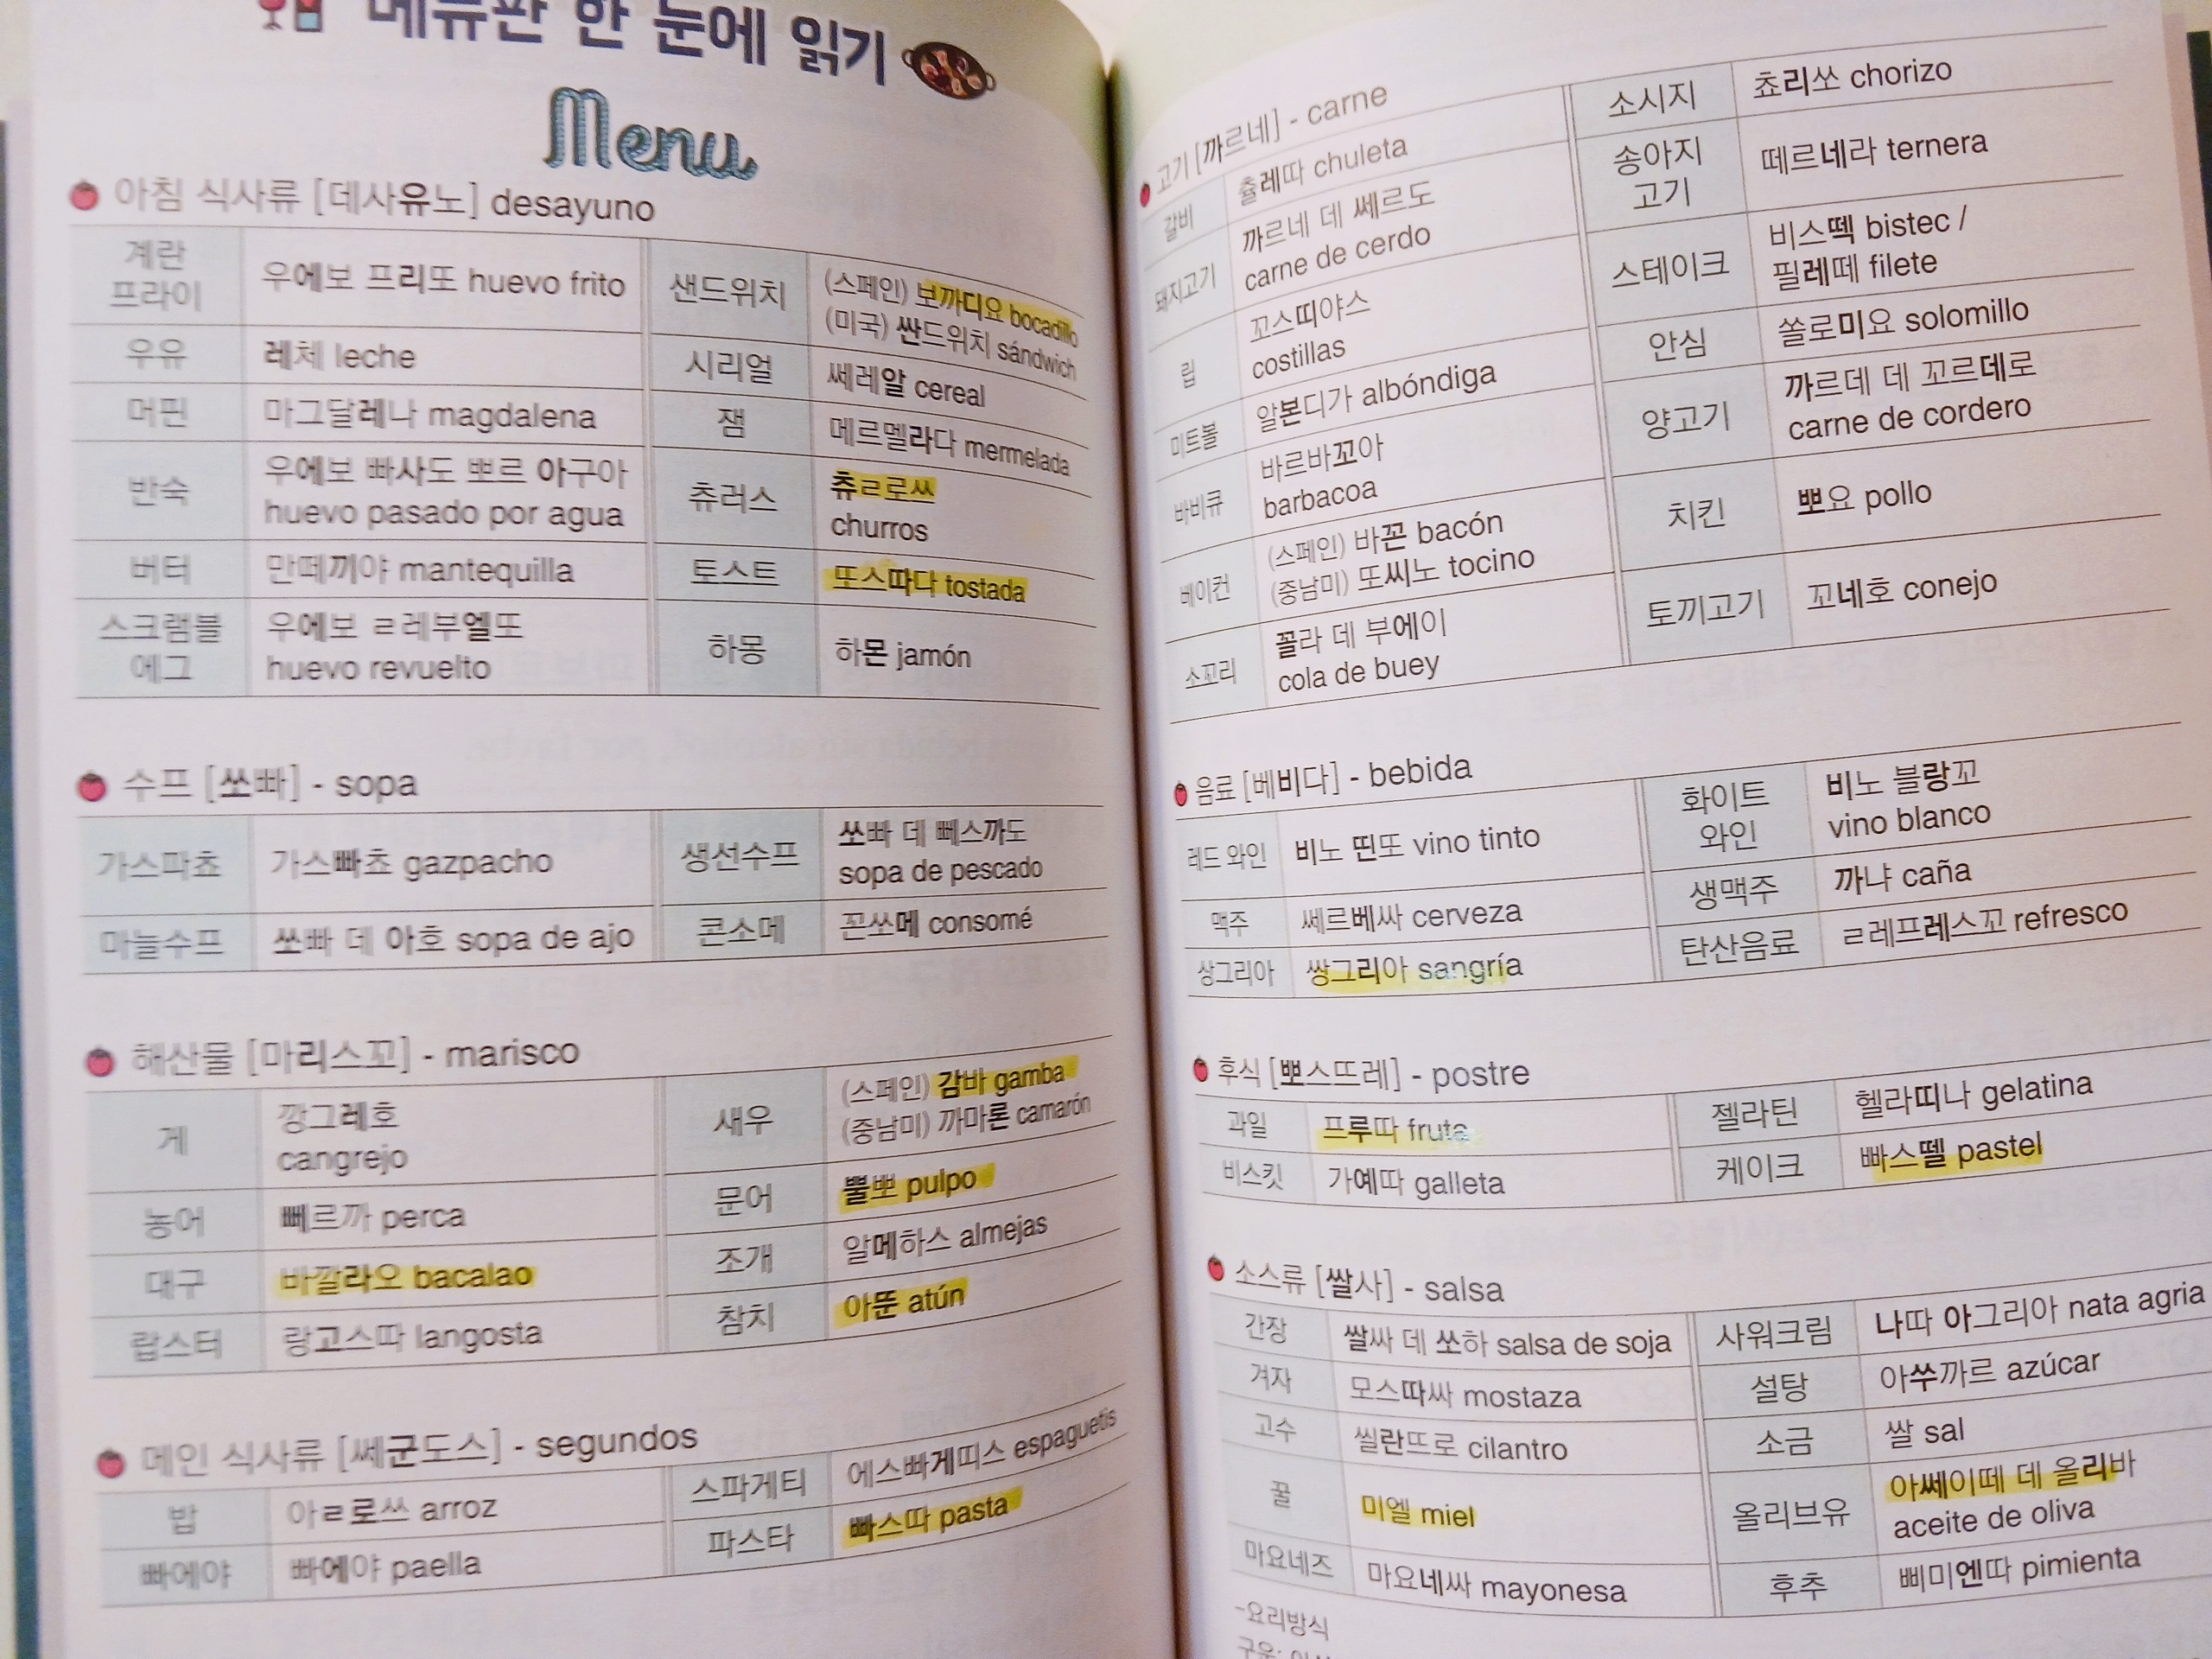 메뉴판 한 눈에 읽기
Menu
아침 식사류 [데사유노] desayuno
계란
프라이
우에보 프리또 huevo frito
샌드위치
(스페인) 보까디요 bocadillo
(미국) 싼드위치 sándwich
우유
레체 leche
시리얼
쎄레알 cereal
머핀
마그달레나 magdalena
잼
메르멜라다 mermelada
반숙
우에보 빠사도 뽀르 아구아
huevo pasado por agua
츄러스
츄ㄹ로쓰
churros
버터
만떼끼야 mantequilla
토스트
또스따다 tostada
스크램블
에그
우에보 ㄹ레부엘또
huevo revuelto
하몽
하몬 jamón
수프 [쏘빠] - sopa
가스파쵸
가스빠쵸 gazpacho
생선수프
쏘빠 데 뻬스까도
sopa de pescado
마늘수프
쏘빠 데 아호 sopa de ajo
콘소메
꼰쏘메 consomé
해산물 [마리스꼬] - marisco
게
깡그레호
cangrejo
새우
(스페인) 감바 gamba
(중남미) 까마론 camarón
농어
뻬르까 perca
문어
뿔뽀 pulpo
대구
바깔라오 bacalao
조개
알메하스 almejas
랍스터
랑고스따 langosta
참치
아뚠 atún
메인 식사류 [쎄군도스] - segundos
밥
아ㄹ로쓰 arroz
스파게티
에스빠게띠스 espaguetis
빠에야
빠에야 paella
파스타
빠스따 pasta
고기 [까르네] - carne
갈비
출레따 chuleta
소시지
쵸리쏘 chorizo
돼지고기
까르네 데 쎄르도
carne de cerdo
송아지
고기
떼르네라 ternera
립
꼬스띠야스
costillas
스테이크
비스떽 bistec /
필레떼 filete
미트볼
알본디가 albóndiga
안심
쏠로미요 solomillo
바비큐
바르바꼬아
barbacoa
양고기
까르데 데 꼬르데로
carne de cordero
베이컨
(스페인) 바꼰 bacón
(중남미) 또씨노 tocino
치킨
뽀요 pollo
소꼬리
꼴라 데 부에이
cola de buey
토끼고기
꼬네호 conejo
음료 [베비다] - bebida
레드 와인
비노 띤또 vino tinto
화이트
와인
비노 블랑꼬
vino blanco
맥주
쎄르베싸 cerveza
생맥주
까냐 caña
상그리아
쌍그리아 sangría
탄산음료
ㄹ레프레스꼬 refresco
후식 [뽀스뜨레] - postre
과일
프루따 fruta
젤라틴
헬라띠나 gelatina
비스킷
가예따 galleta
케이크
빠스뗄 pastel
소스류 [쌀사] - salsa
간장
쌀싸 데 쏘하 salsa de soja
사워크림
나따 아그리아 nata agria
겨자
모스따싸 mostaza
설탕
아쑤까르 azúcar
고수
씰란뜨로 cilantro
소금
쌀 sal
꿀
미엘 miel
올리브유
아쎄이떼 데 올리바
aceite de oliva
마요네즈
마요네싸 mayonesa
후추
삐미엔따 pimienta
-요리방식
구운: